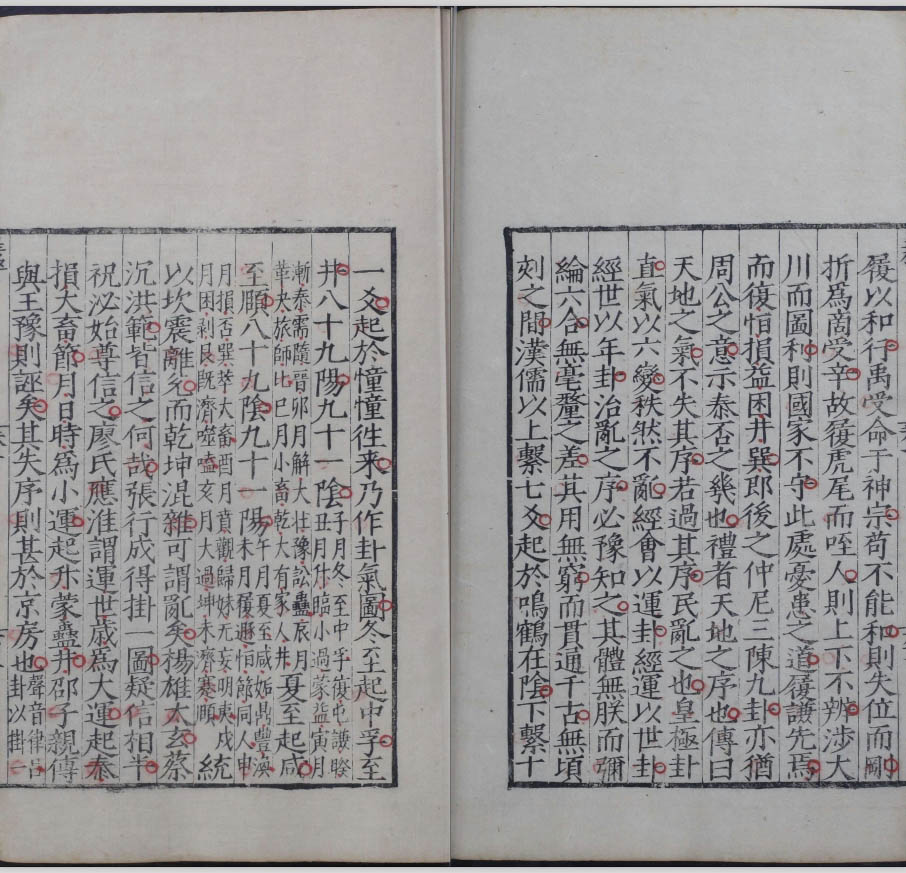 履以和行禹受命于神宗苟不能和則失位而剛
折爲啇受辛故履虎尾而咥人則上下不辨涉大
川而圖利則國家不守此處憂患之道履謙先焉
而復恒損益困井巽即後之仲尼三陳九卦亦猶
周公之意示泰否之幾也禮者天地之序也傳曰
天地之氣不失其序若過其序民亂之也皇極卦
直氣以六變秩然不亂經會以運卦經運以世卦
經世以年卦治亂之序必豫知之其體無朕而彌
綸六合無毫釐之差其用無窮而貫通千古無頃
刻之間漢儒以上繫七爻起於鳴鶴在陰下繫十
一爻起於憧憧徃来乃作卦氣圖冬至起中孚至
井八十九陽九十一陰子月冬至中孚復屯謙睽丑月升臨小過蒙益寅月
漸泰需隨晉卯月解大壯豫訟蠱辰月革夬旅師比巳月小畜乾大有家人井夏至起咸
至頤八十九陰九十一陽午月夏至咸姤鼎豐渙未月履遯恒節同人申
月損否巽萃大畜酉月賁觀歸妹无妄明夷戌月困剥艮既濟噬嗑亥月大過坤未濟蹇頤統
以坎震離兊而乾坤混雜可謂亂矣楊雄太玄蔡
沉洪範皆信之何哉張行成得掛一圖疑信相半
祝泌始尊信之廖氏應淮謂運世歲爲大運起泰
損大畜節月日時爲小運起升蒙蠱井邵子親傳
與王豫則誣矣其失序則甚於京房也聲音律呂卦以掛